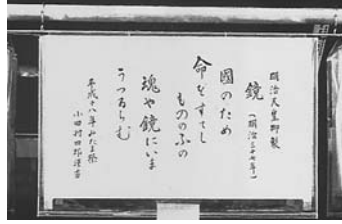 明治天皇御製
鏡 (明治三十七年)
國のため
命をすてし
もののふの
魂や鏡にいま
うつるらむ
平成十八年みたま祭
小田村四郎謹書